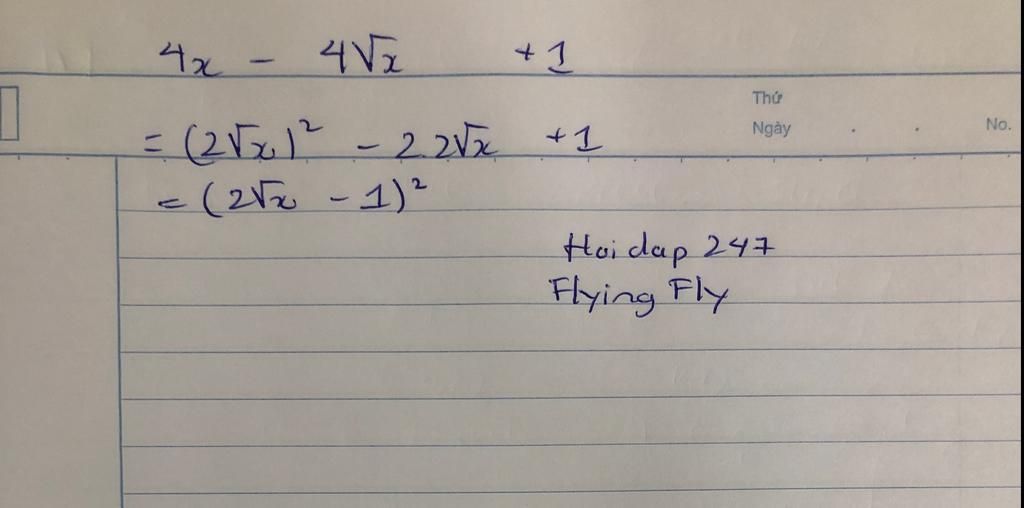 4x - 4√x + 1
Thứ
Ngày . . No.
= (2√x)² - 2.2√x + 1
= (2√x - 1)²
Hoi dap 247
Flying Fly